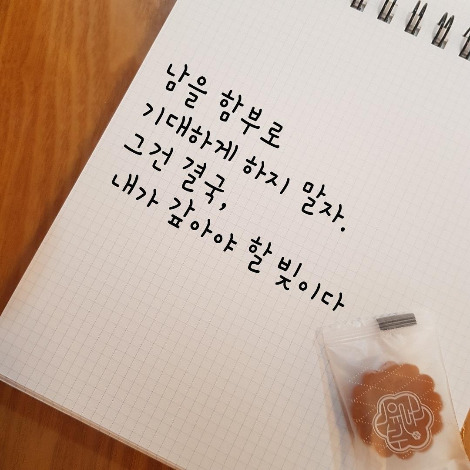 남을 함부로
기대하게 하지 말자.
그건 결국,
내가 갚아야 할 빚이다